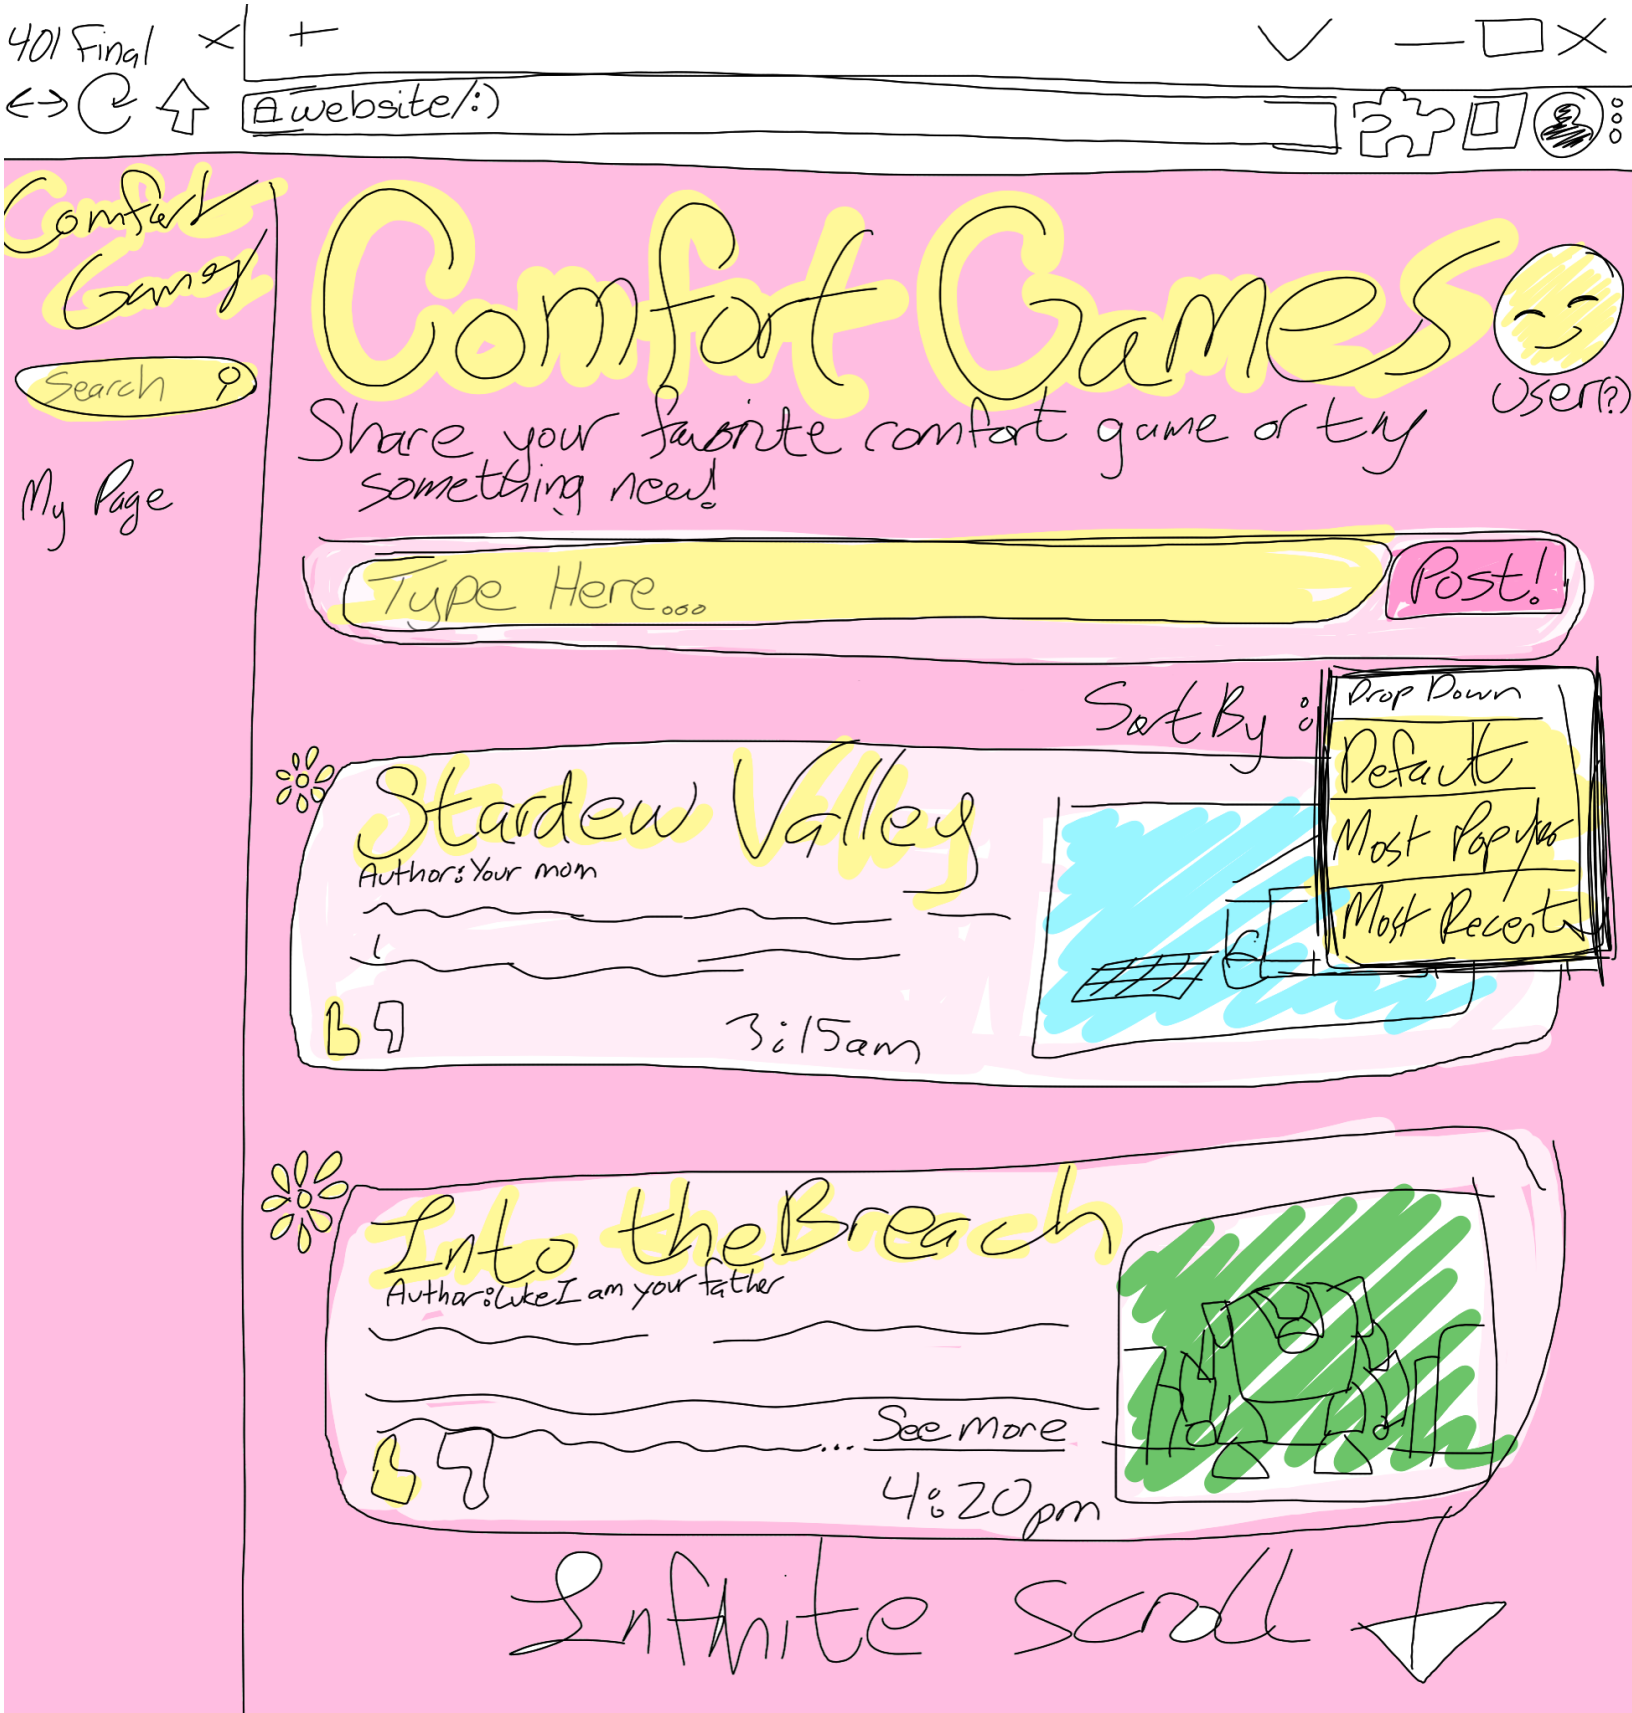 401 Final
A website/:)
Comfort
Games
Search
My Page
Comfort Games
User(?)
Share your favorite comfort game or try
something new!
Type Here...
Post!
Sort By :
Drop Down
Default
Most Popular
Most Recent
Stardew Valley
Author: Your mom
3:15am
Into the Breach
Author: Luke I am your father
... See more
4:20pm
Infinite scroll